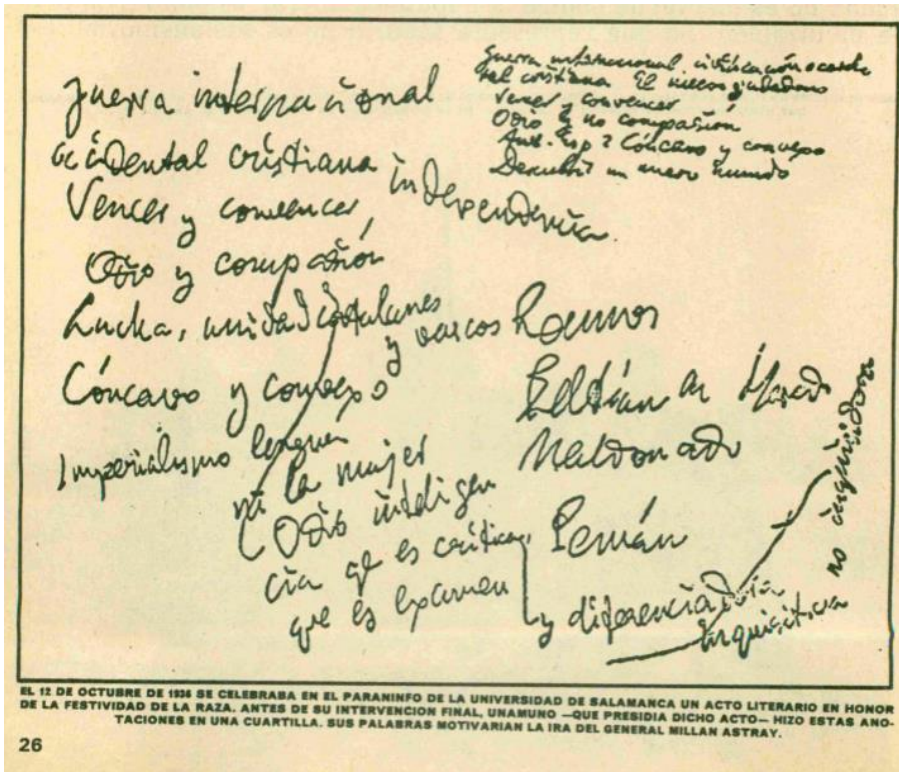 guerra internacional
occidental cristiana
independencia
Vencer y convencer,
Odio y compasión
Lucha, unidad catalanes
y vascos
Cóncavo y convexo
Imperialismo lengua
ni la mujer
Odio inteligen
cia qe es crítica,
que es examen
y diferenciadora
inquisitiva
no inquisidora
Ramos
Beltrán de
Maldonado
Pemán
guerra internacional
cristiana El
Vencer y convencer
Odio y no compasión
Ant. Esp? Cóncavo y convexo
Descubrir un nuevo mundo
EL 12 DE OCTUBRE DE 1936 SE CELEBRABA EN EL PARANINFO DE LA UNIVERSIDAD DE SALAMANCA UN ACTO LITERARIO EN HONOR
DE LA FESTIVIDAD DE LA RAZA. ANTES DE SU INTERVENCION FINAL, UNAMUNO —QUE PRESIDIA DICHO ACTO— HIZO ESTAS ANO-
TACIONES EN UNA CUARTILLA. SUS PALABRAS MOTIVARIAN LA IRA DEL GENERAL MILLAN ASTRAY.
26